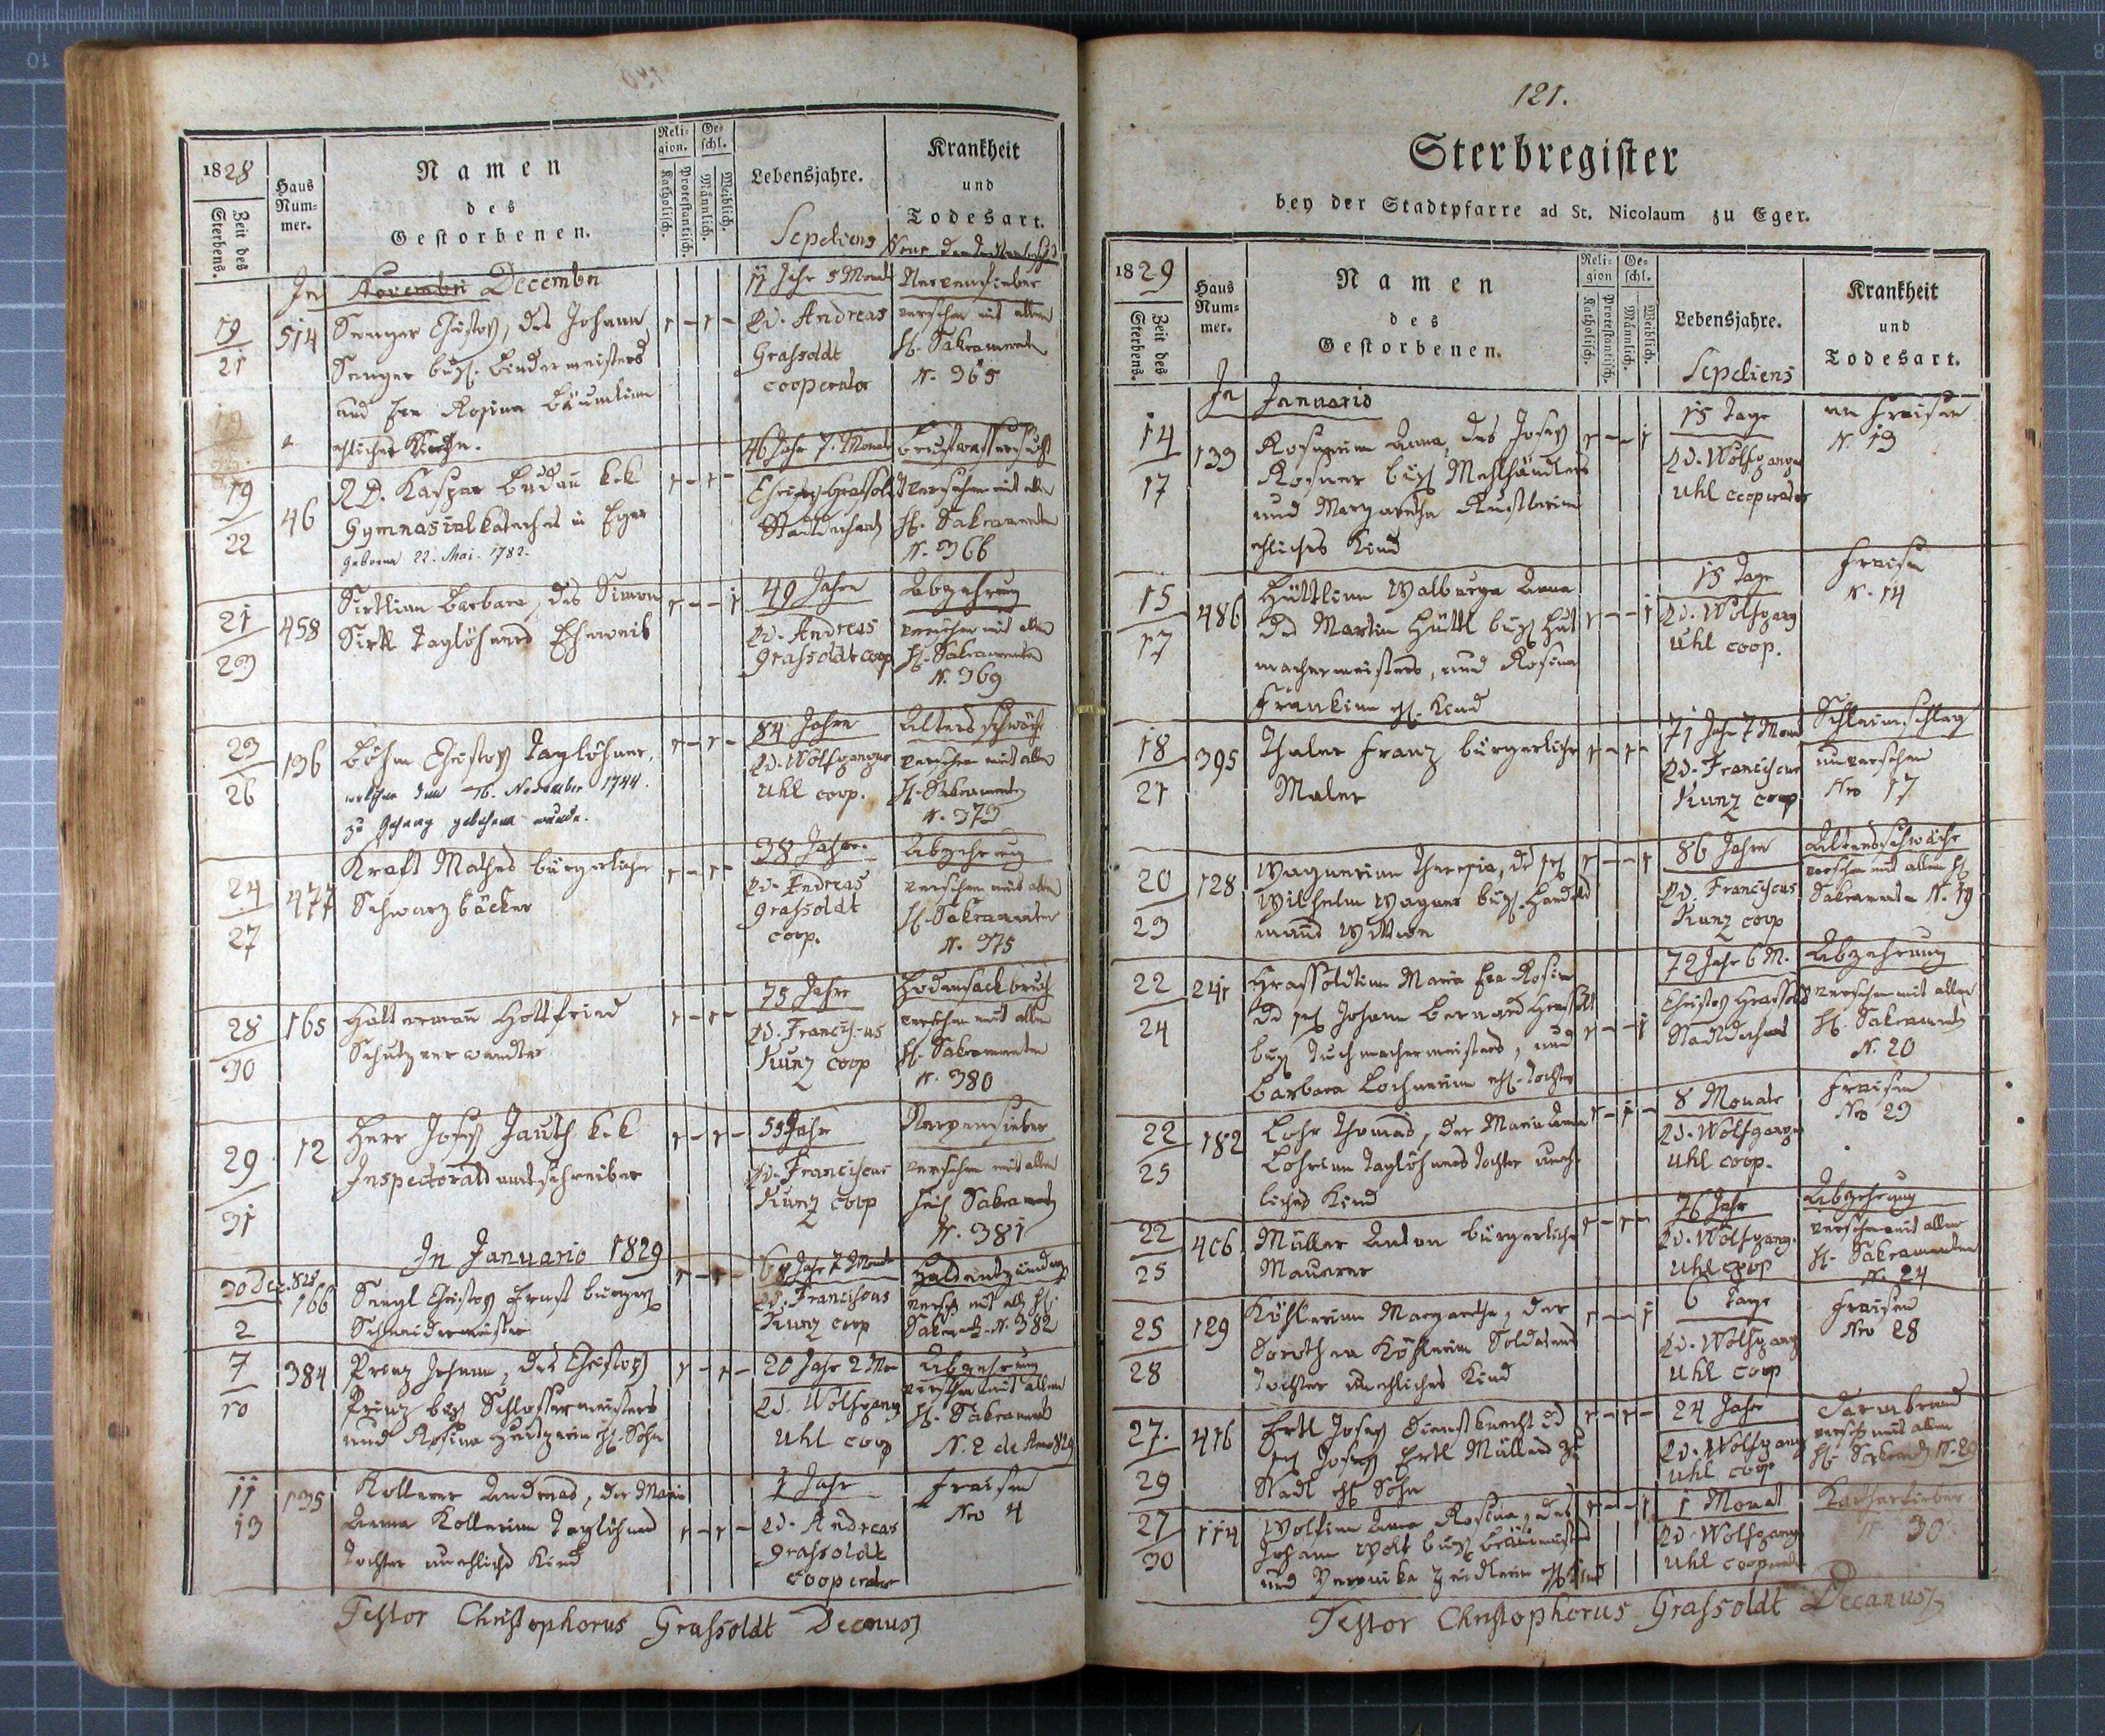 1828
Zeit des Sterbens.
Haus Nummer.
Namen
des
Gestorbenen.
Religion.
Katholisch.
Protestantisch.
Geschl.
Männlich.
Weiblich.
Lebensjahre.
Sepeliens
Krankheit
und
Todesart.
In Decembri
19
21
514
Senger Christoph, des Johann
Senger bügl. Bindermeisters
und der Rosina Bäumlinn
11 Jahr 5 Monat
Ad. Andreas
Grassoldt
cooperator
Nervenfieber
versehen mit allen
hl. Sakramenten
N. 365
19
22
46
A.D. Kaspar Budau k.k.
Gymnasialkatechet in Eger
geboren 22. Mai. 1782.
46 Jahr 7. Monat
Christoph Grassoldt
Stadtdechant
Brustwassersucht
versehen mit allen
hl. Sakramenten
N. 366
21
23
458
Sirtlinn Barbara, des Simon
Sirtl Taglöhners Eheweib
49 Jahre
Ad. Andreas
Grassoldt coop
Abzehrung
versehen mit allen
hl. Sakramenten
N. 369
23
26
136
Böhm Christoph Taglöhner,
welcher den 16. November 1744.
84 Jahre
Ad. Wolfgangus
Uhl coop.
Altersschwäche
versehen mit allen
hl. Sakramenten
N. 373
24
27
477
Kraft Mathes bürgerlicher
Schwarzbäcker
38 Jahre.
Ad. Andreas
Grassoldt
coop.
Abzehrung
versehen mit allen
hl. Sakramenten
N. 375
28
30
165
Haltermañ Gottfried
Schutzverwandter
75 Jahre
Ad. Franciscus
Kunz coop
Hodensackbruch
versehen mit allen
hl. Sakramenten
N. 380
29
31
12
Herr Joseph Jauth k.k.
Inspectoratsamtschreiber
55 Jahr
Ad. Franciscus
Kunz coop
Nervenfieber
versehen mit allen
heil. Sakramenten
N. 381
In Januario 1829
30 Dez. 828
2
166
Sengl Christoph Ernst bürgerl.
Schneidermeister
Jahr 7 Monat
Ad. Franciscus
Kunz coop
Halsentzündung
N. 382
7
10
384
Prinz Johann, des Christoph
Prinz bügl. Schlossermeisters
und Rosina ehl. Sohn
20 Jahr 2 Mon
Ad. Wolfgang
Uhl coop
Abzehrung
versehen mit allen
hl. Sakrament
N. 2 de Anno 829
11
13
135
Kollerer Andreas, der Maria
Anna Kollerinn Taglöhners
Tochter unehliches Kind
1 Jahr
Ad. Andreas
Grassoldt
cooperator
Fraisen
Nro 4
Testor Christophorus Grassoldt Decanus
121.
Sterbregister
bey der Stadtpfarre ad St. Nicolaum zu Eger.
1829
Zeit des Sterbens.
Haus Nummer.
Namen
des
Gestorbenen.
Religion
Katholisch.
Protestantisch.
Geschl.
Männlich.
Weiblich.
Lebensjahre.
Sepeliens
Krankheit
und
Todesart.
In Januario
14
17
133
Rosnerinn Anna, des Joseph
Rosner bügl. Mehlhändlers
und Margaretha
ehliches Kind
15 Tage
Ad. Wolfgang
Uhl cooperator
an Fraisen
N. 13
15
17
486
Hüttlinn Walburga Anna
des Martin Hüttl bügl. Hut
machermeisters, und Rosina
Frankinn ehl. Kind
15 Tage
Ad. Wolfgang
Uhl coop.
Fraisen
N. 14
18
21
395
Thaler Franz bürgerlicher
Maler
71 Jahr 7 Monat
Ad. Franciscus
Kunz coop
Schleimschlag
unversehen
Nro 17
20
23
128
Wagnerinn Theresia, des sel.
Wilhelm Wagner bügl. Handels
manns Wittwe
86 Jahre
Ad. Franciscus
Kunz coop
Altersschwäche
versehen mit allen hl.
Sakrament. N. 19
22
24
241
Grassoldtinn Maria Eva Rosina
des sel. Johann Bernard Grassoldt
bügl. Tuchmachermeisters, und
Barbara Lochnerinn ehl. Tochter
72 Jahr 6 M.
Christoph Grassoldt
Stadtdechant
Abzehrung
versehen mit allen
hl. Sakramenten
N. 20
22
25
182
Lohr Thomas, der Maria Anna
Lohrinn Taglöhners Tochter uneh
liches Kind
8 Monate
Ad. Wolfgang
Uhl coop.
Fraisen
Nro 23
22
25
406
Müller Anton bürgerlicher
Maurer
76 Jahr
Ad. Wolfgang.
Uhl coop
Abzehrung
versehen mit allen
hl. Sakramenten
N. 24
25
28
129
Köhlerinn Margaretha, der
Dorothea Köhlerinn Soldatens
Tochter unehliches Kind
6 Tage
Ad. Wolfgang
Uhl coop
Fraisen
Nro 28
27.
29
416
Ertl Joseph Dienstknecht des
sel. Joseph Ertl Müllers zu
Stadl ehl. Sohn
24 Jahr
Ad. Wolfgang
Uhl coop
Darmbrand
versehen mit allen
27
30
114
Wolfinn Anna Rosina, des
Johann Wolf bügl. Bräumeisters
und Veronika Zeidlerinn ehl. Kind
1 Monat
Ad. Wolfgang
Uhl cooperator
N 30
Testor Christophorus Grassoldt Decanus